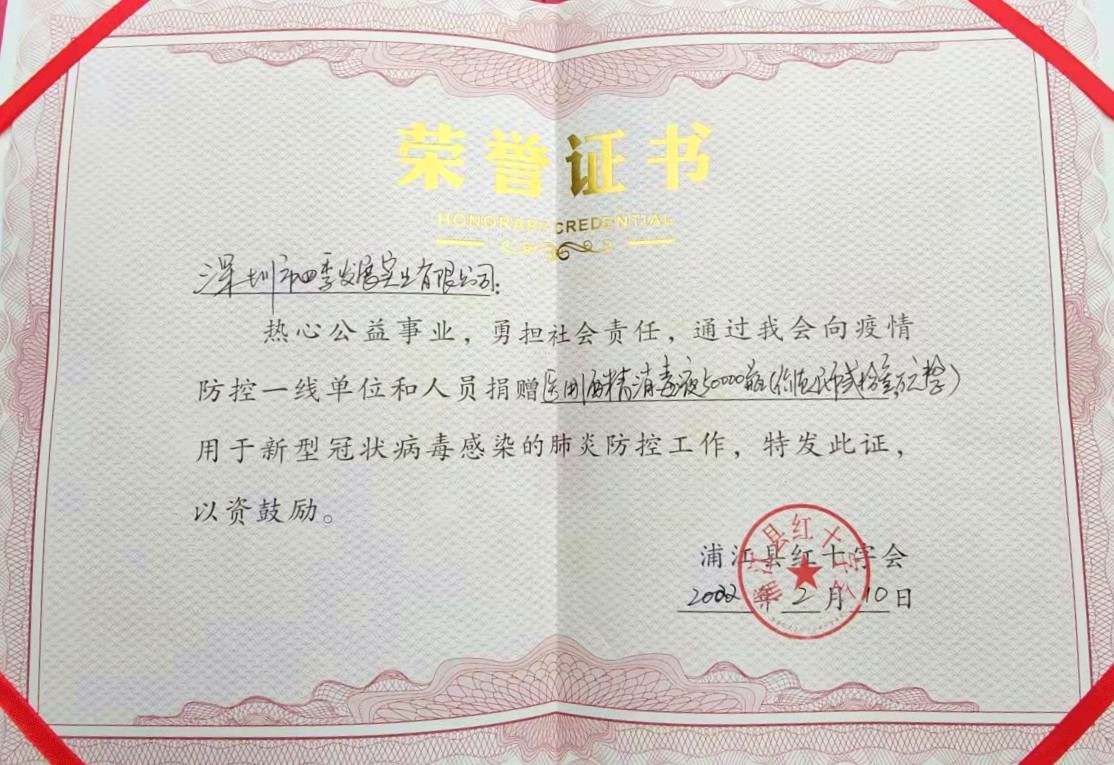 荣誉证书
HONORARY CREDENTIAL
深圳市四季发展实业有限公司:
热心公益事业，勇担社会责任，通过我会向疫情
防控一线单位和人员捐赠医用酒精消毒液50000瓶(价值人民币贰拾叁万元整)
用于新型冠状病毒感染的肺炎防控工作，特发此证，
以资鼓励。
浦江县红十字会
2022年2月10日
浦江县红十字会